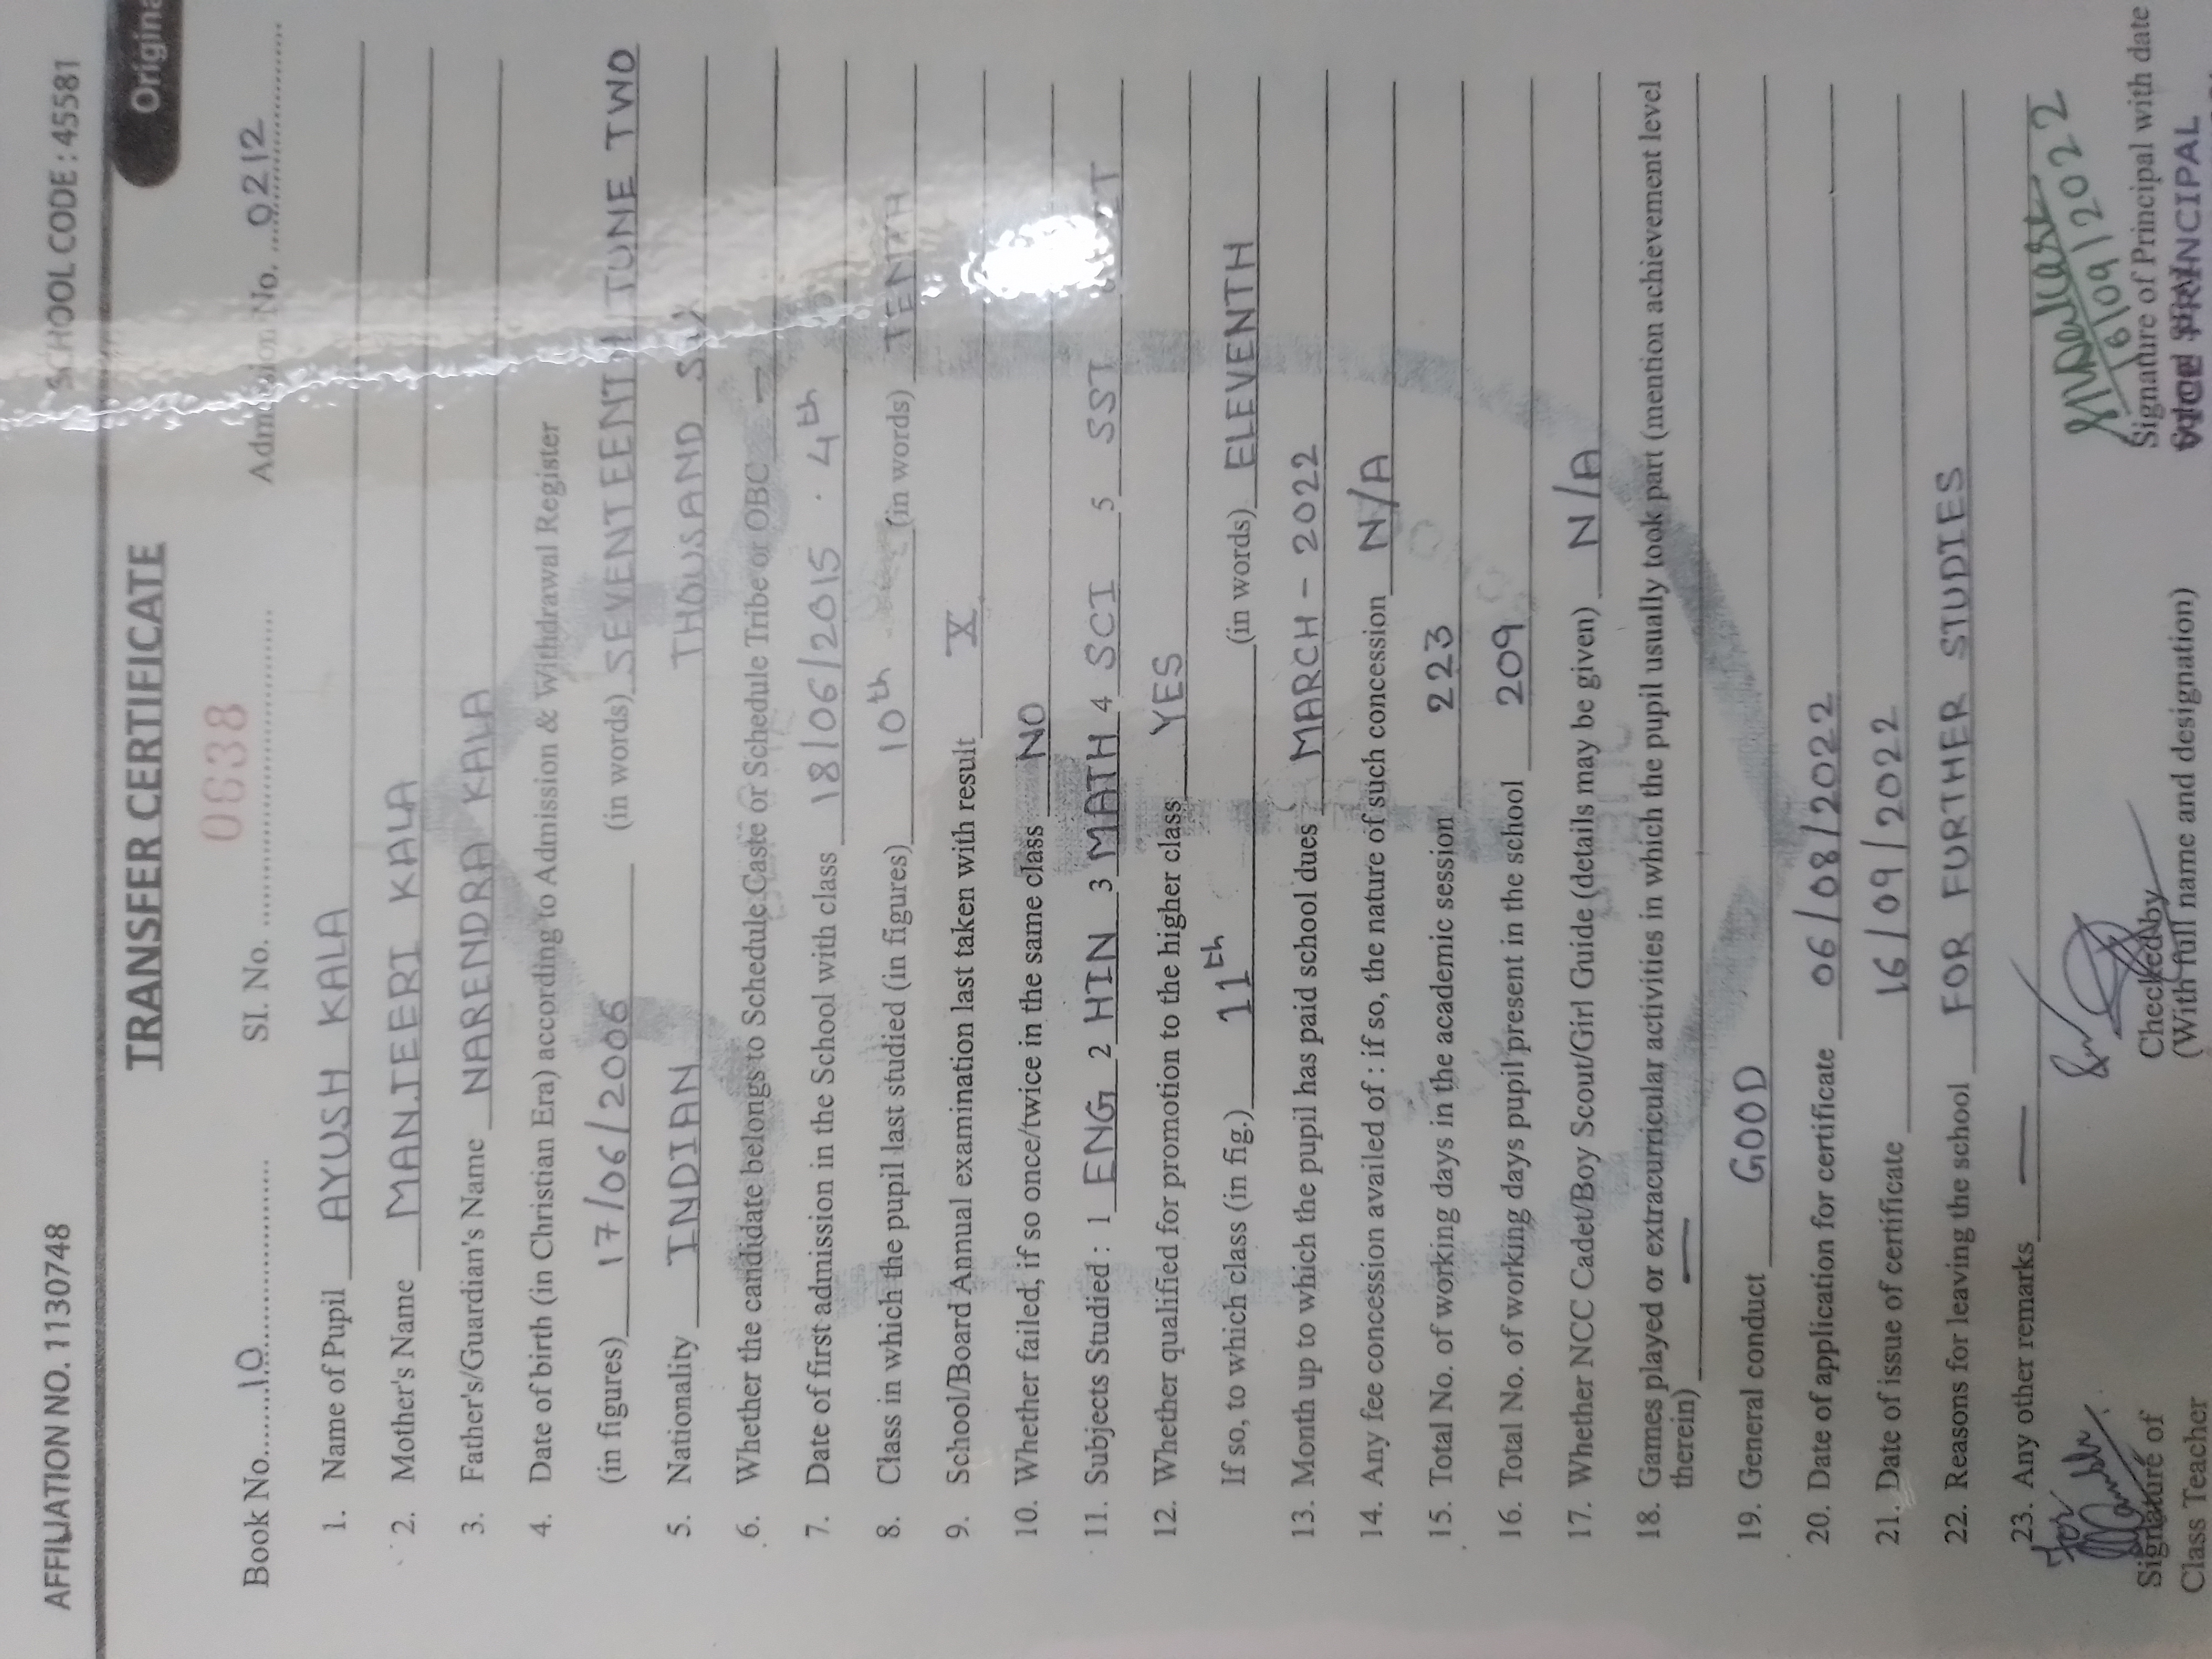 AFFILIATION NO. 1130748 SCHOOL CODE : 45581
TRANSFER CERTIFICATE
Origina
0638
Book No......10............... Sl. No. ........................ Admission No. ...0212...............
1. Name of Pupil AYUSH KALA
2. Mother's Name MANJEERI KALA
3. Father's/Guardian's Name NARENDRA KALA
4. Date of birth (in Christian Era) according to Admission & Withdrawal Register
(in figures) 17/06/2006 (in words) SEVENTEENTH JUNE TWO
5. Nationality INDIAN THOUSAND SIX
6. Whether the candidate belongs to Schedule Caste or Schedule Tribe or OBC —
7. Date of first admission in the School with class 18/06/2015 . 4th
8. Class in which the pupil last studied (in figures) 10th (in words) TENTH
9. School/Board Annual examination last taken with result X
10. Whether failed, if so once/twice in the same class NO
11. Subjects Studied : 1 ENG 2 HIN 3 MATH 4 SCI 5 SST
12. Whether qualified for promotion to the higher class YES
If so, to which class (in fig.) 11th (in words) ELEVENTH
13. Month up to which the pupil has paid school dues MARCH - 2022
14. Any fee concession availed of : if so, the nature of such concession N/A
15. Total No. of working days in the academic session 223
16. Total No. of working days pupil present in the school 209
17. Whether NCC Cadet/Boy Scout/Girl Guide (details may be given) N/A
18. Games played or extracurricular activities in which the pupil usually took part (mention achievement level
therein) —
19. General conduct GOOD
20. Date of application for certificate 06/08/2022
21. Date of issue of certificate 16/09/2022
22. Reasons for leaving the school FOR FURTHER STUDIES
23. Any other remarks —
For
16/09/2022
Signature of Checked by Signature of Principal with date
Class Teacher (With full name and designation) PRINCIPAL